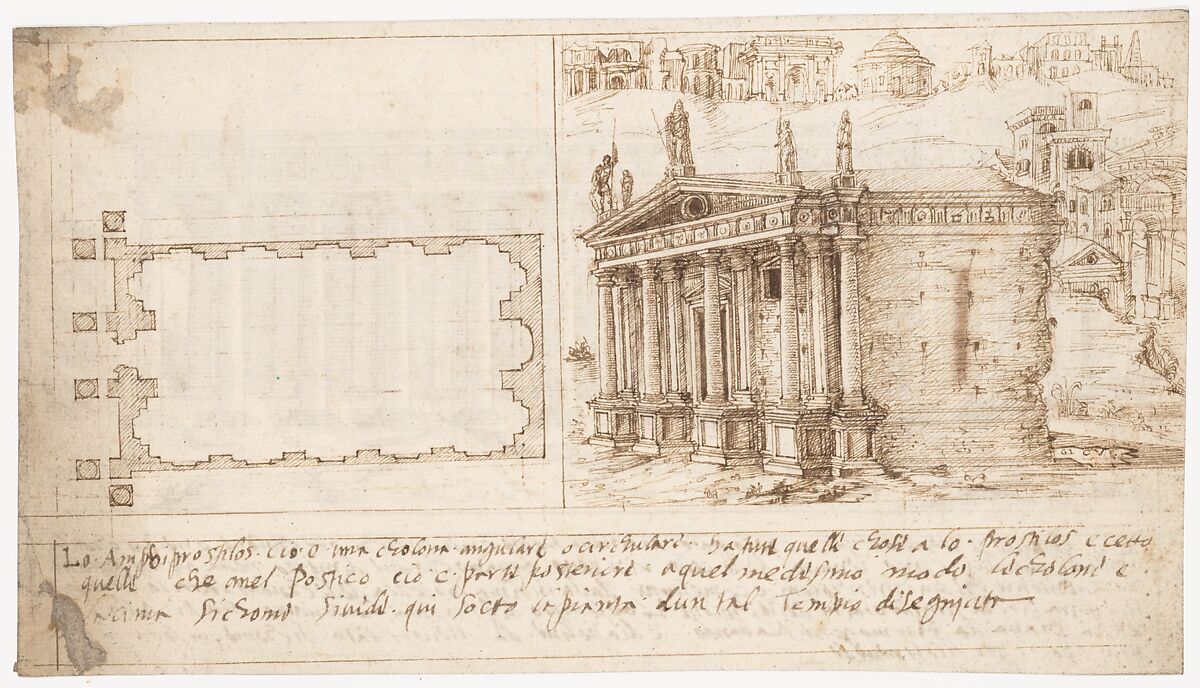 Lo Amphiprostilos cio e una cholona angulare o circhulare ha tuti quelli chose a lo prostilos ecetto
quelle che a nel postico cio e parte posteriore a quel medesimo modo le cholone e
cima sichome si vide qui socto la pianta dun tal tempio disegniata